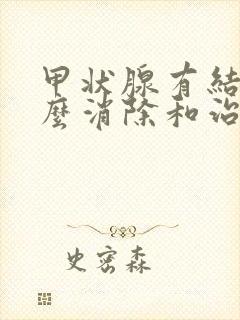 甲状腺有結
麼消除和治
史密森